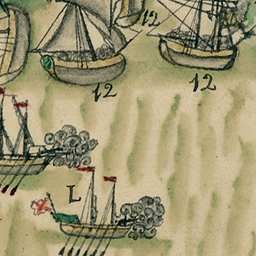 12
12
12
L